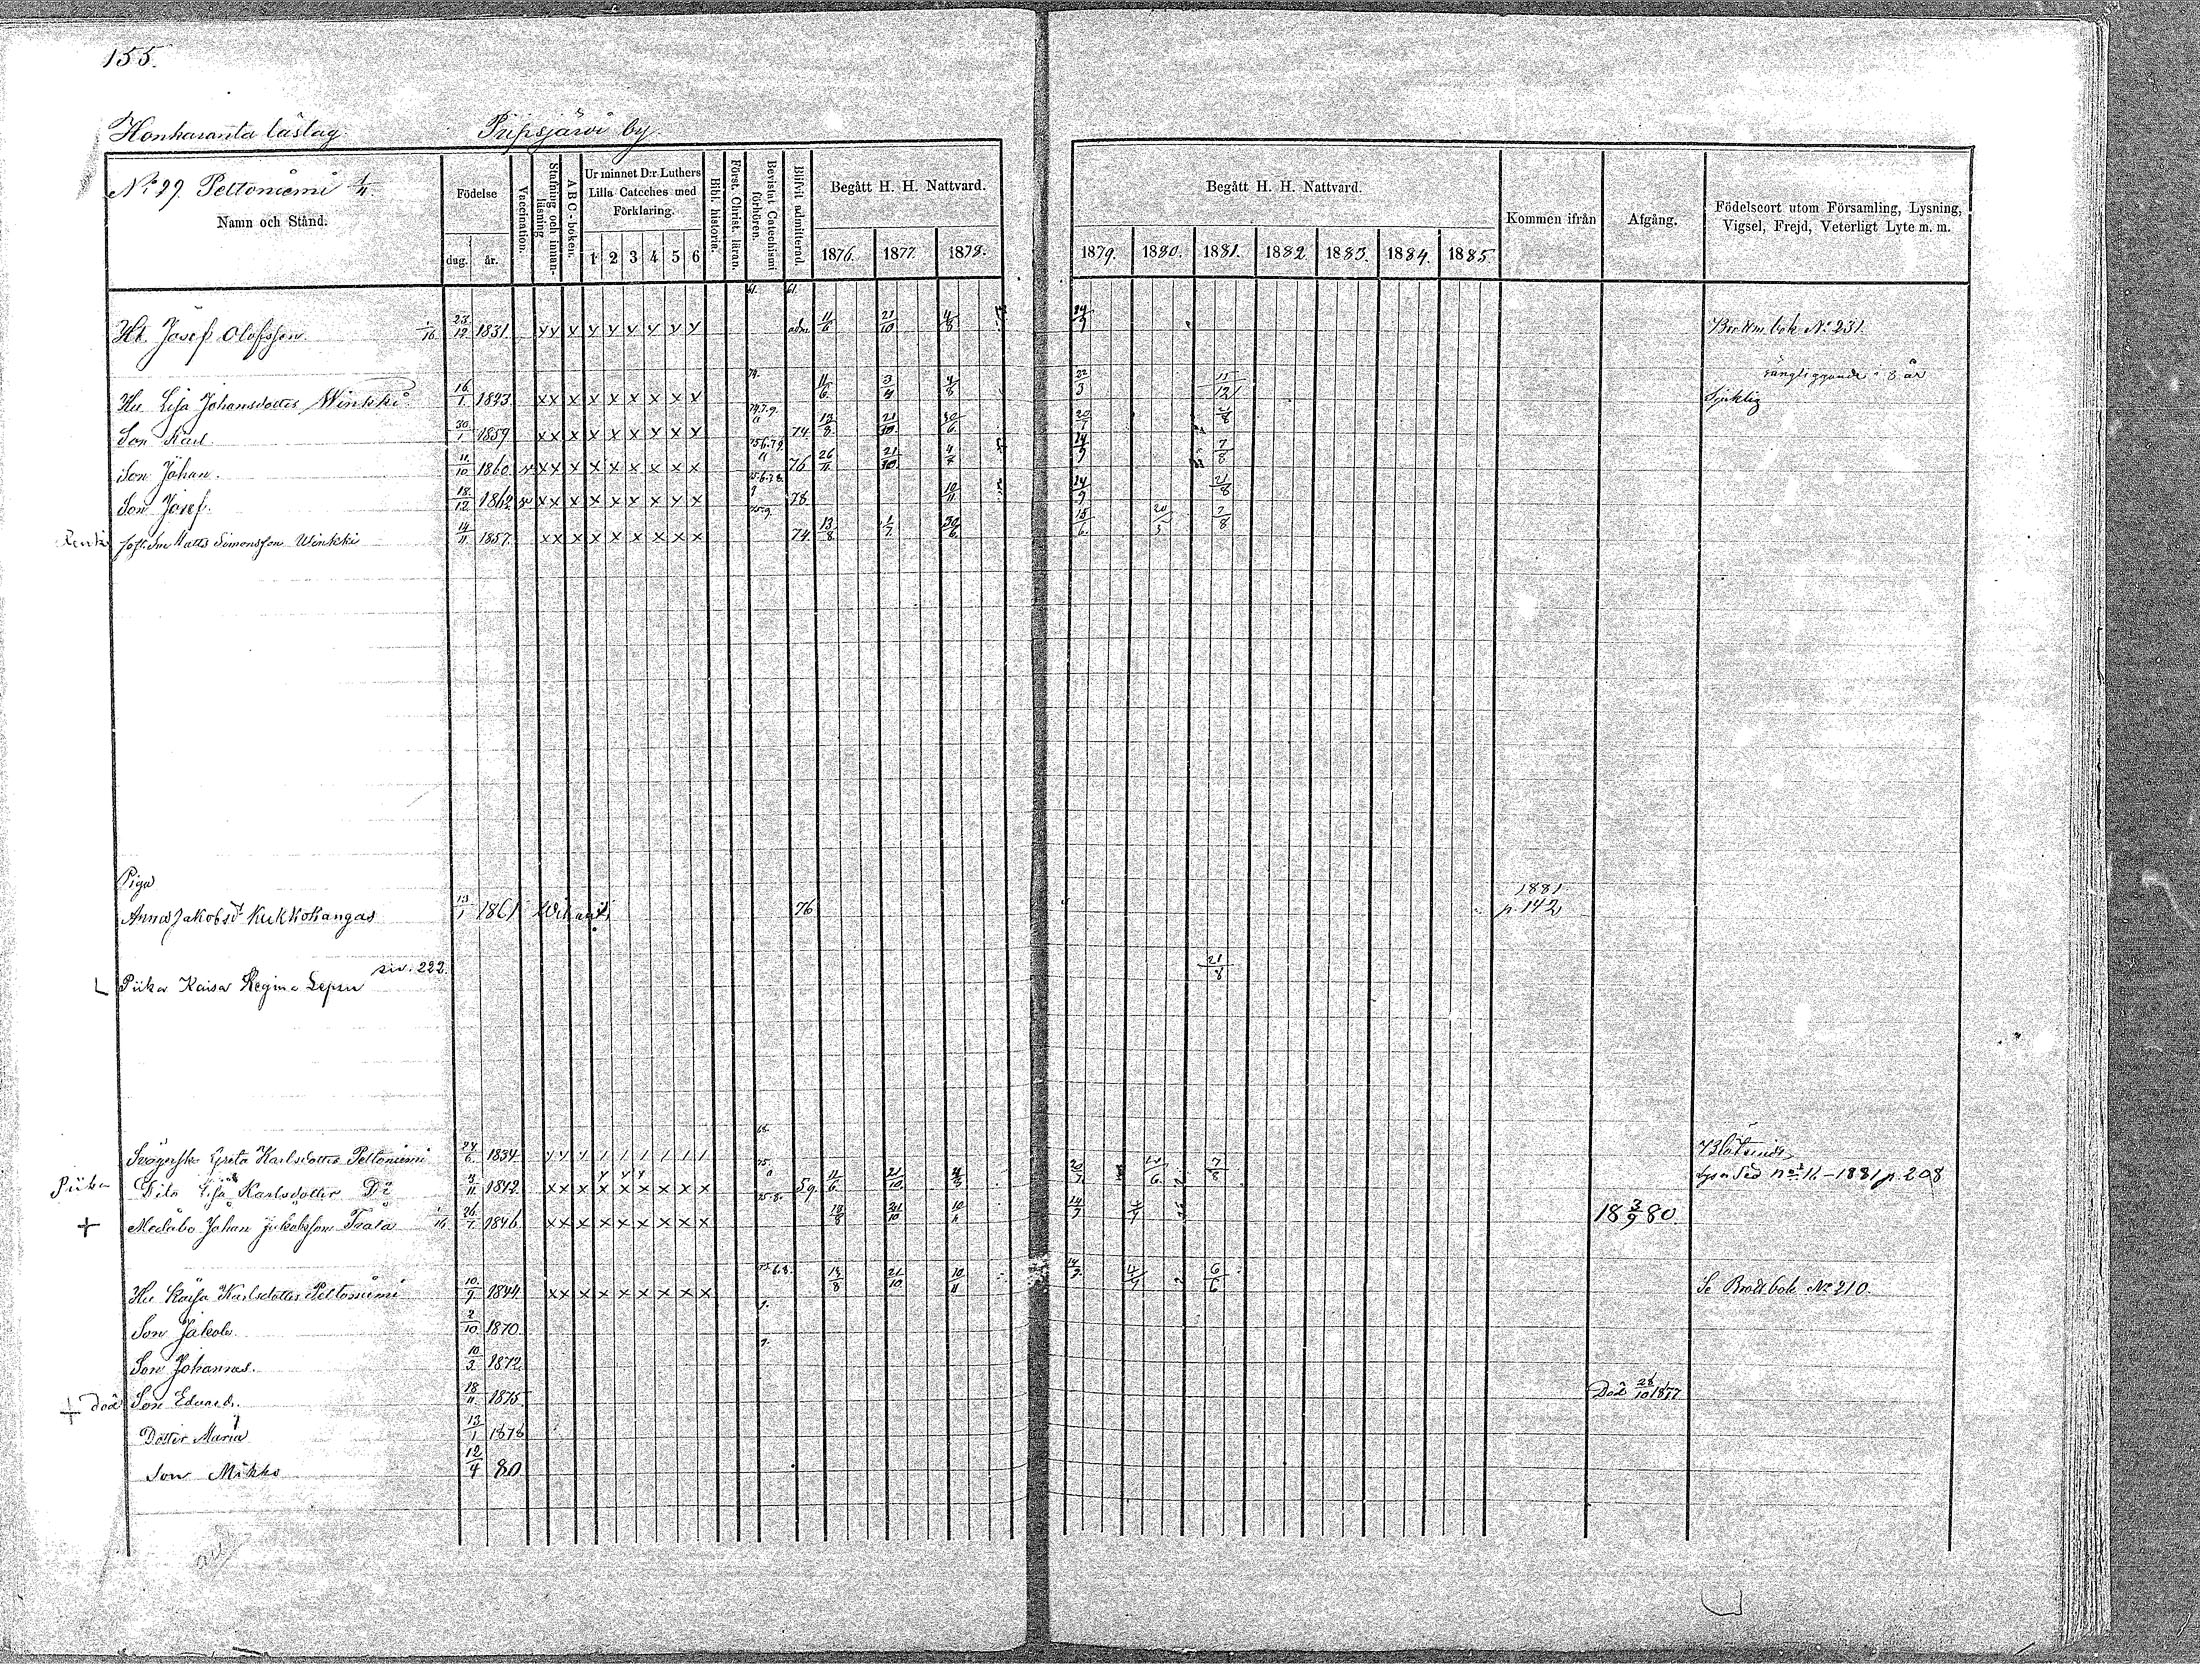 155.
Honkaranta läslag. Pitpsjärvi by.
No 29. Peltoniemi 1/11
Namn och Stånd.
Födelse
dag. år.
Vaccination.
Stafning och innan-läsning
ABC-boken.
Ur minnet D:r Luthers Lilla Cateches med Förklaring.
1 2 3 4 5 6
Bibl. historia.
Först. Christ. läran.
Bevistat Catechismi förhören.
Blifvit admitterad.
Begått H. H. Nattvard.
1876. 1877. 1878.
Begått H. H. Nattvard.
1879. 1880. 1881. 1882. 1883. 1884. 1885.
Kommen ifrån
Afgång.
Födelseort utom Församling, Lysning, Vigsel, Frejd, Veterligt Lyte m. m.
Josef Olofsson 1/16 23/12 1831 xx x x x x x x x adm 11/6 21/10 4/8 14/9 No 231.
8 år
Hu Lisa Johansdotter Winkki 16/1 1823 xx x x x x x x x 11/6 3/4 4/8 22/3 15/12 Sjuklig
Son Karl. 30/1 1859 xx x x x x x x x 74 13/8 21/10 30/6 20/7 21/8
Son Johan. 11/10 1860 xx x x x x x x x 76 26/11 21/10 14/9 7/8
Son Josef. 18/12 1862 xx x x x x x x x 78. 10/11 14/9 21/8
Matts Simonsson Winkki 14/11 1857. xx x x x x x x x 74. 13/8 1/7 30/6 15/6 20/5 7/8
Piga
Anna Jakobsd Kukkohangas 13/1 1861 76 1881 p. 142
siv. 222.
Piika Kaisa Regina Lepsu 21/8
Svägerska Greta Karlsdotter Peltoniemi 24/6 1834
Piika Dito Lisa Karlsdotter Do 3/11 1842 xx x x x x x x x 59 11/6 21/10 4/8 20/7 20/6 7/8 1881 p. 208
+ Medåbo Johan Jakobsson Trata 1/16 26/7 1846 xx x x x x x x x 13/8 21/10 10/11 14/9 4/7 18 3/9 80
Hu Kaisa Karlsdotter Peltoniemi 10/9 1844 xx x x x x x x x 13/8 21/10 10/11 14/9 4/7 6/6 Se No 210.
Son Jakob. 2/10 1870.
Son Johannes. 10/3 1872
+ död Son Eduard. 18/11 1875 Död 28/10 1877
Dotter Maria 13/1 1878
Son Mikko 12/4 80